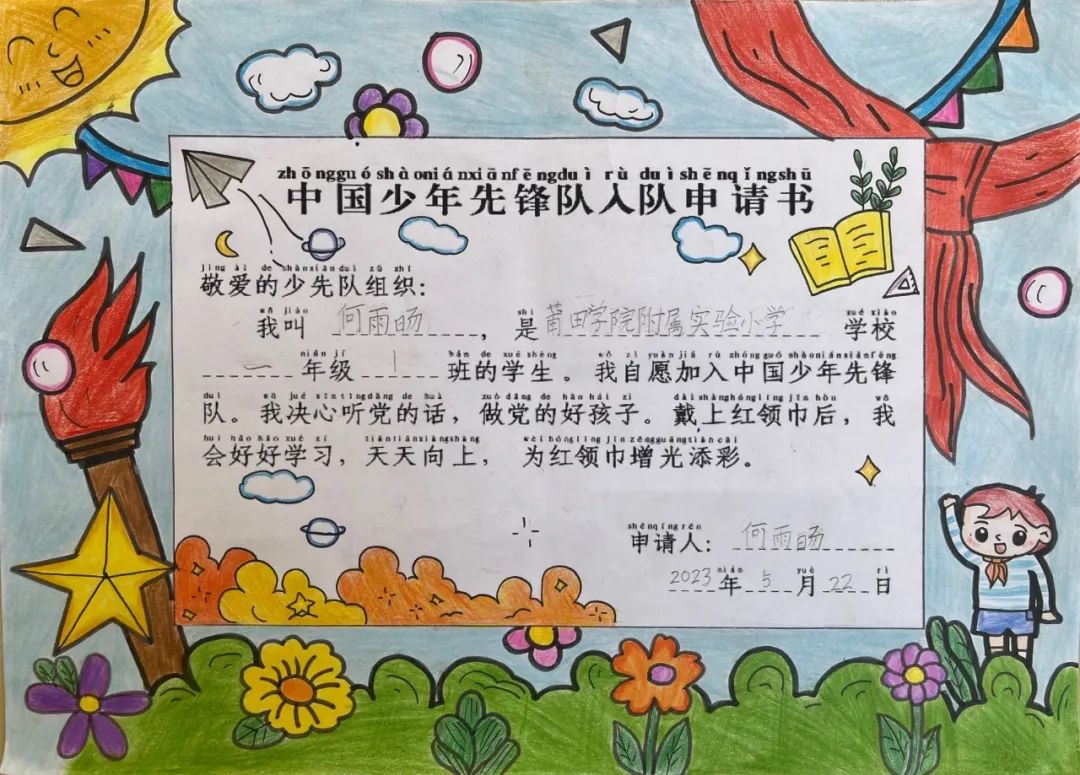 zhōngguóshàoniánxiānfēngduì rù duìshēnqǐngshū
中国少年先锋队入队申请书
jìng ài de shàoxiānduì zǔ zhī
敬爱的少先队组织：
wǒ jiào shì xué xiào
我叫 何雨旸 ，是 莆田学院附属实验小学 学校
nián jí bān de xué shēng wǒ zì yuàn jiā rù zhōng guó shào nián xiān fēng
一 年级 1 班的学生。我自愿加入中国少年先锋
duì wǒ jué xīn tīng dǎng de huà zuò dǎng de hǎo hái zi dài shàng hóng lǐng jīn hòu wǒ
队。我决心听党的话，做党的好孩子。戴上红领巾后，我
huì hǎo hǎo xué xí tiān tiān xiàng shàng wèi hóng lǐng jīn zēng guāng tiān cǎi
会好好学习，天天向上，为红领巾增光添彩。
shēn qǐng rén
申请人： 何雨旸
nián yuè rì
2023 年 5 月 22 日